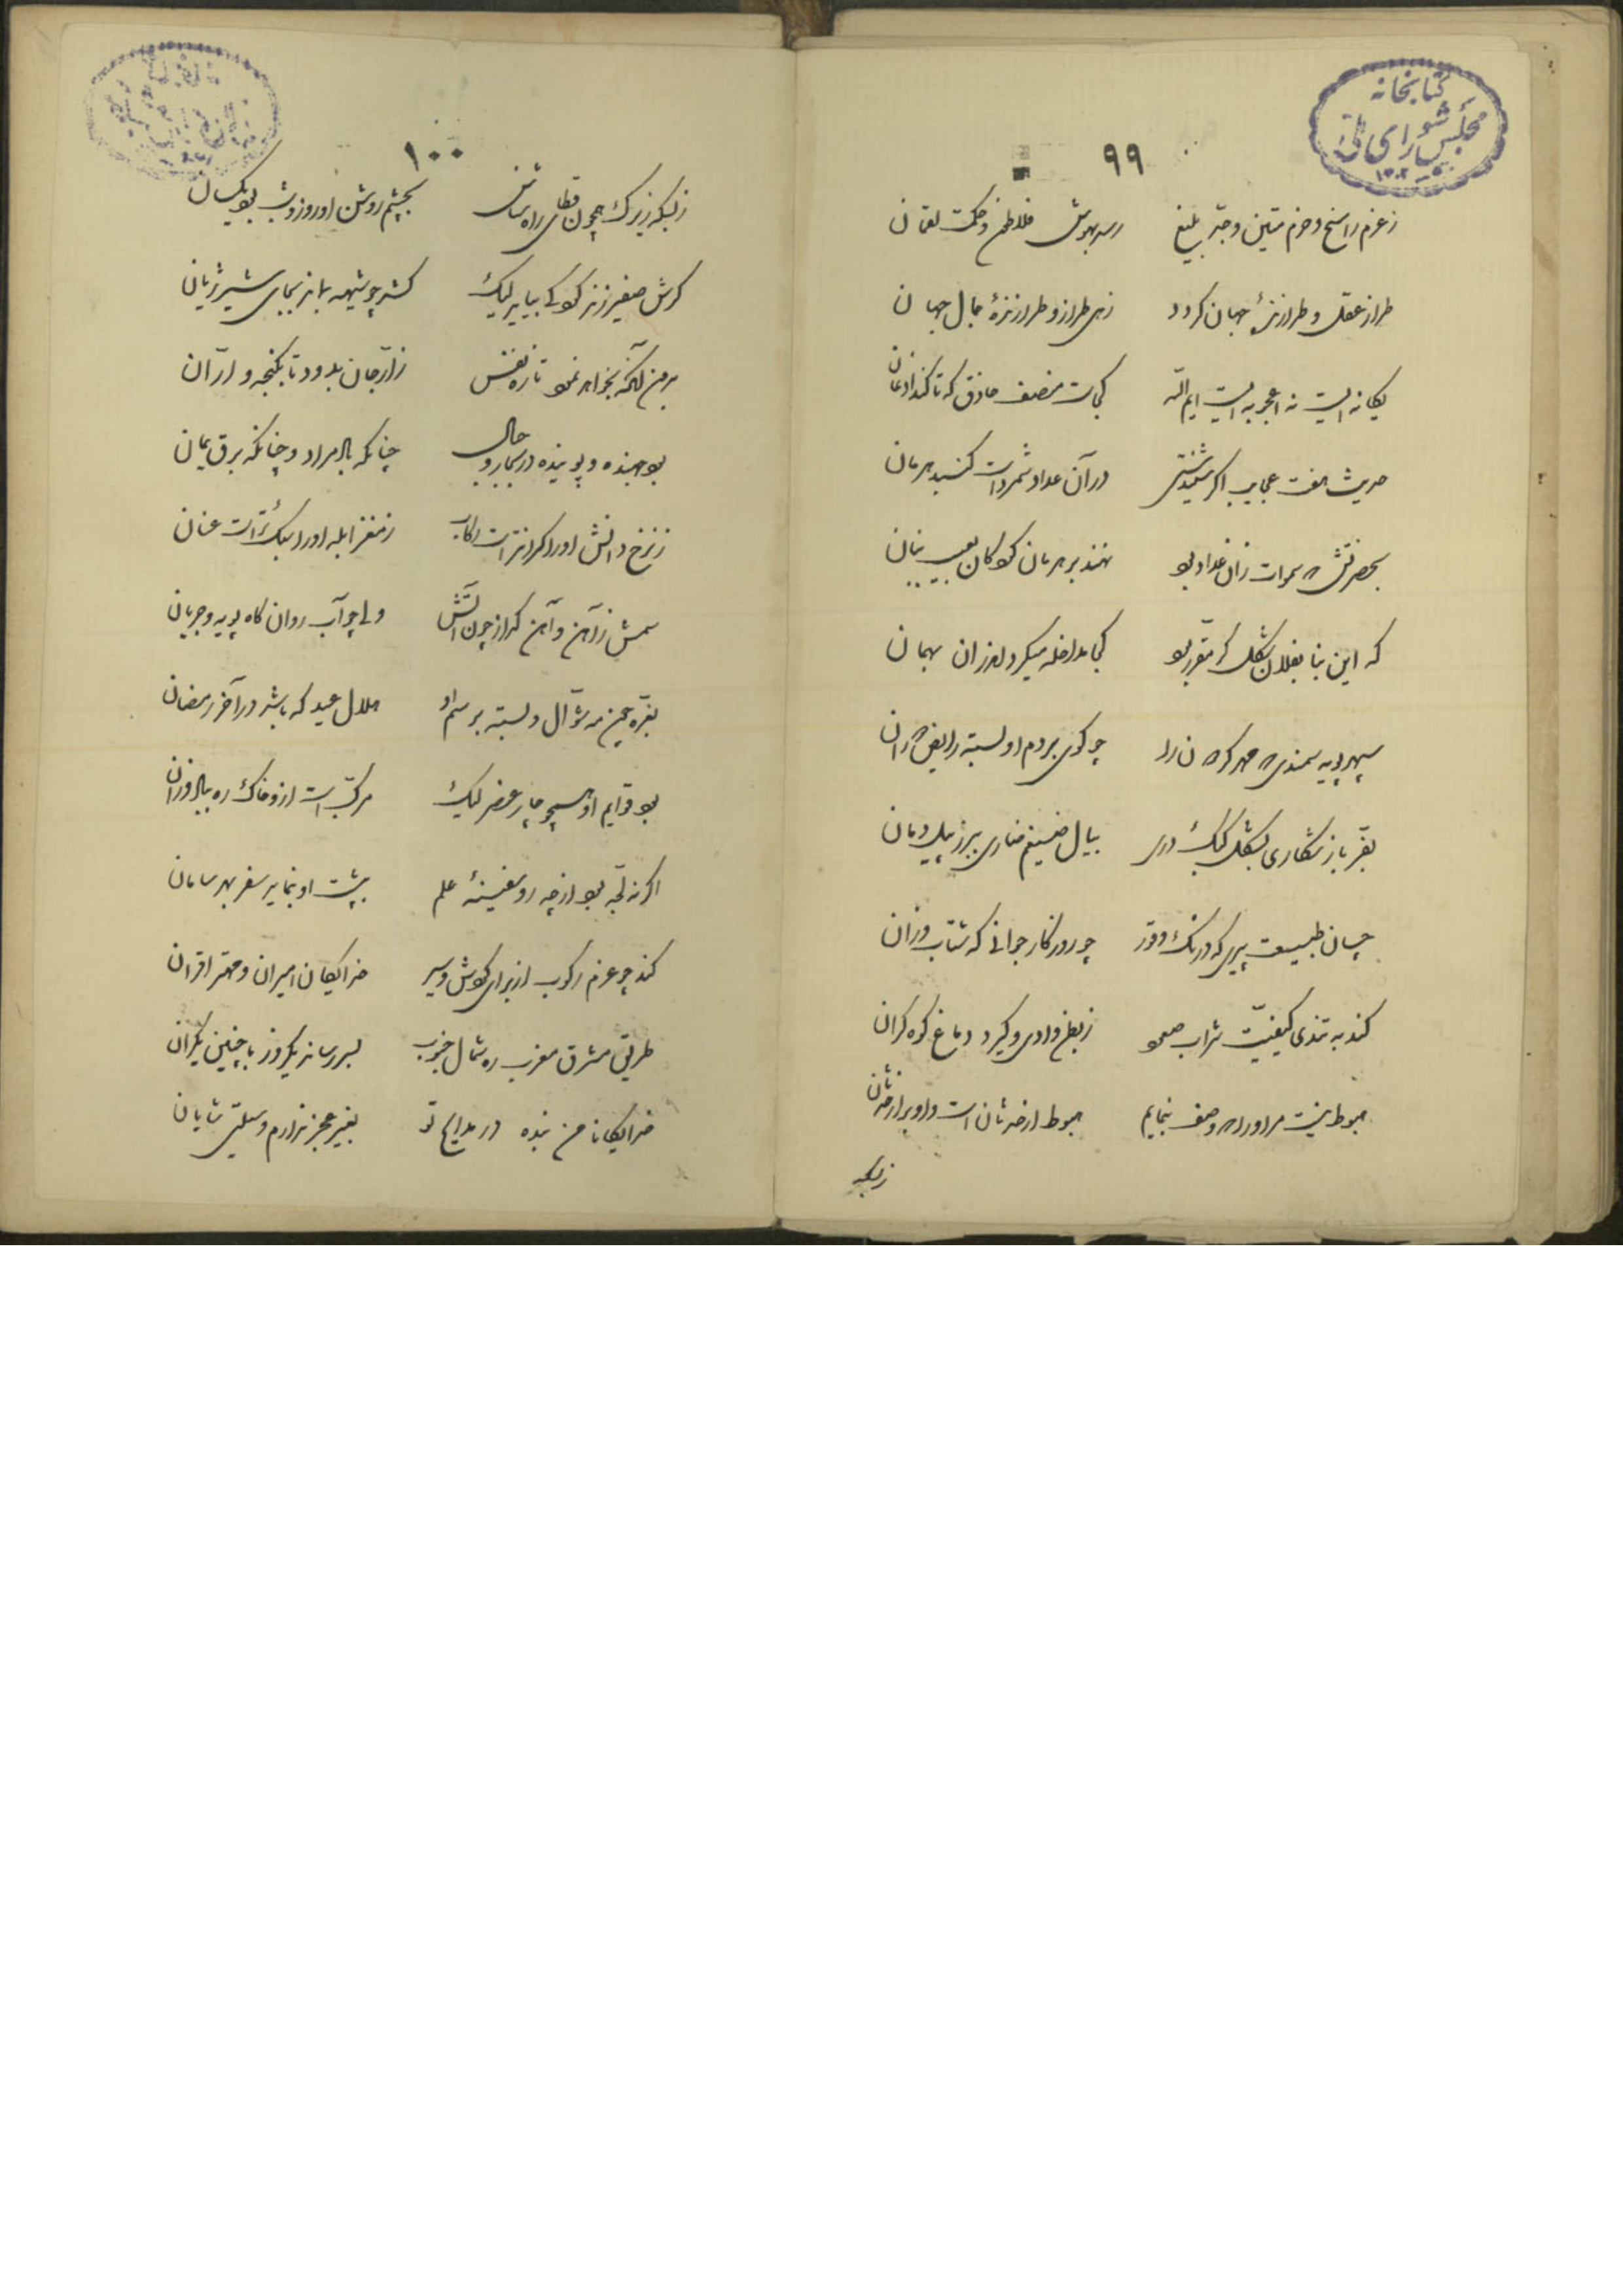 کتابخانه
مجلس شورای ملی
۹۹
ز عزم راسخ و حزم متین و جد بلیغ رسد بهوش فلاطن و حکمت لقمان
طراز عقل و طرازنده جهان کردد زهی طراز و طرازنده جمال جهان
یکانه ایست نه اعجوبه ایست ایم الله کجاست منصف حاذق که تا کند اذعان
حدیث هفت عجایب اکر شنیدستی در آن عداد شمرد است کنبد هرمان
نهند بر هرمان کودکان لعب بنان
که این بنا بفلان شکل کر مقرر بود کجا مداخله میکرد اندران بهمان
سپهر پویه سمندی چو کوی بر دم او بسته رایض
بفر باز شکاری بشکل کبک دری بیال ضیغم ضاری ببرز پیل دمان
چسان طبیعت پیری که درنک و وقار چو روزکار جوانی که شتاب وزان
کند به تندی کیفیت شراب صعود ز بطن وادی و کیرد دماغ کوه کران
هبوط نیست مر او را وصف بنمایم هبوط ار خور شان است و او برا
زبسکه
۱۰۰
زبسکه زیرک همچون قطای راه شناس بچشم روشن او روز و شب بود یکسان
کرش صفیر زند کودکی بیاید لیک کشد چو شیهه بماند بجای شیر ژیان
برون آنکه بخواهد نمود تازه نفس ز ارّجان بدود تا بکنجه و ارّان
بود جهنده و پوینده در بحار و جبال چنانکه باد مراد و چنانکه برق یمان
ز نرخ دانش او را کران تر است رکاب ز مغز ابله او را سبک تر است عنان
سمش ز آهن و آهن کداز چون آتش ولی چو آب روان کاه پویه و جریان
بغره عین مه شوال و بسته بر سم او هلال عید که باشد در آخر رمضان
بود قوایم او همچو چار عنصر لیک مرکب است ازو خاک ره بباد وزان
اکر نه لجه بود از چه رو سفینه علم بپشت او بنماید سفر بهر سامان
کند چو عزم رکوب از برای کوشش و سیر خدایکان امیران و مهتر اقران
طریق مشرق مغرب ره شمال جنوب بسر رساند یکروز با چنین یکران
خدایکانا من بنده در مدایح تو بغیر عجز ندارم وسیلتی شایان